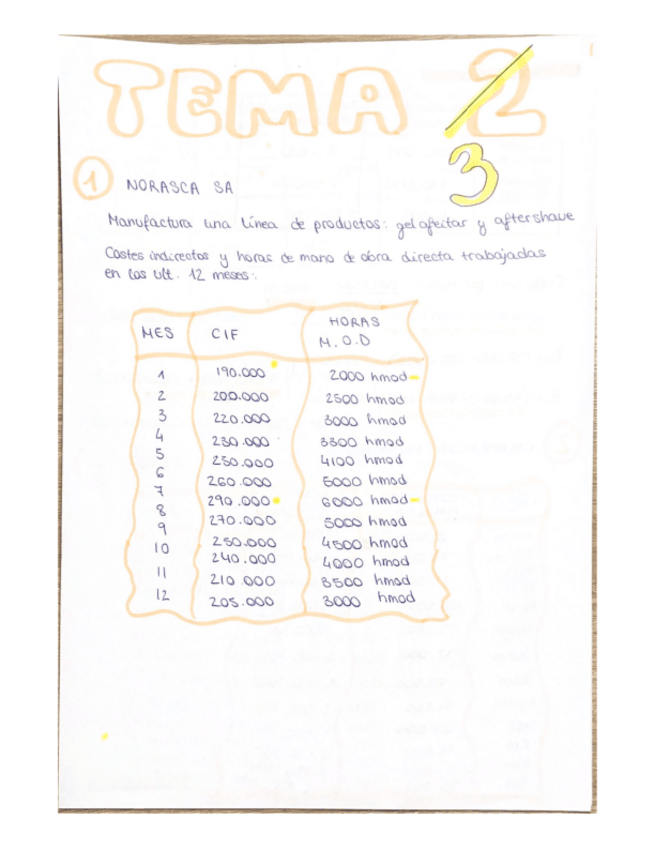 TEMA 2
3
1 NORASCA SA
Manufactura una línea de productos: gel afeitar y aftershave
Costes indirectos y horas de mano de obra directa trabajadas
en los ult. 12 meses:
MES CIF HORAS M.O.D
1 190.000 2000 hmod
2 200.000 2500 hmod
3 220.000 3000 hmod
4 230.000 3300 hmod
5 250.000 4100 hmod
6 260.000 5000 hmod
7 290.000 6000 hmod
8 270.000 5000 hmod
9 250.000 4500 hmod
10 240.000 4000 hmod
11 210.000 3500 hmod
12 205.000 3000 hmod